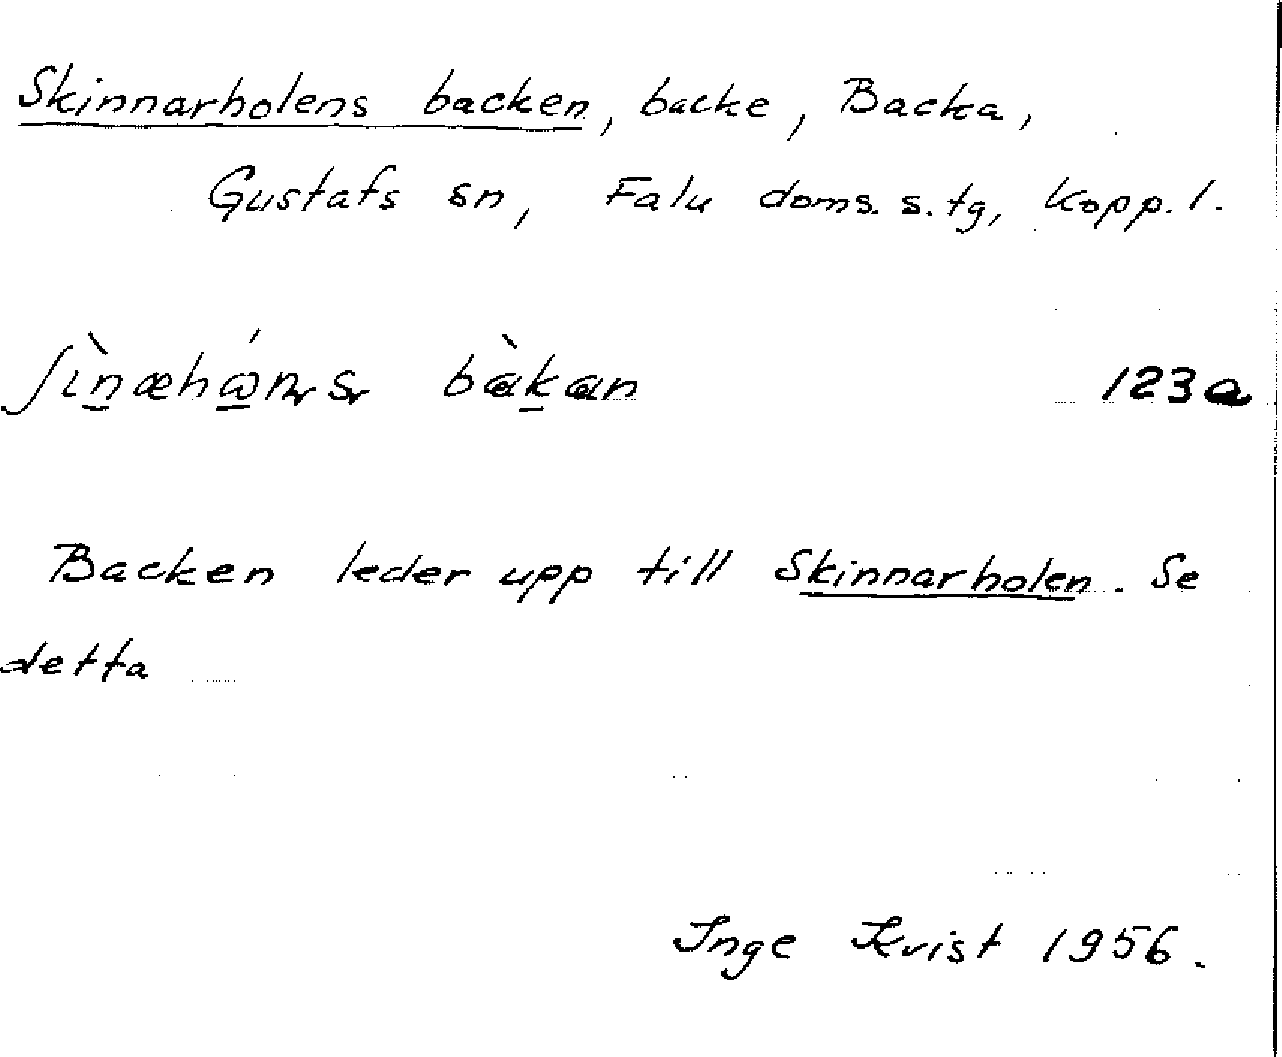 Skinnarholens backen, backe, Backa,
Gustafs sn, Falu doms. s. tg, Kopp. l.
bàkan 123a
Backen leder upp till Skinnarholen. Se
detta
Inge Kvist 1956.